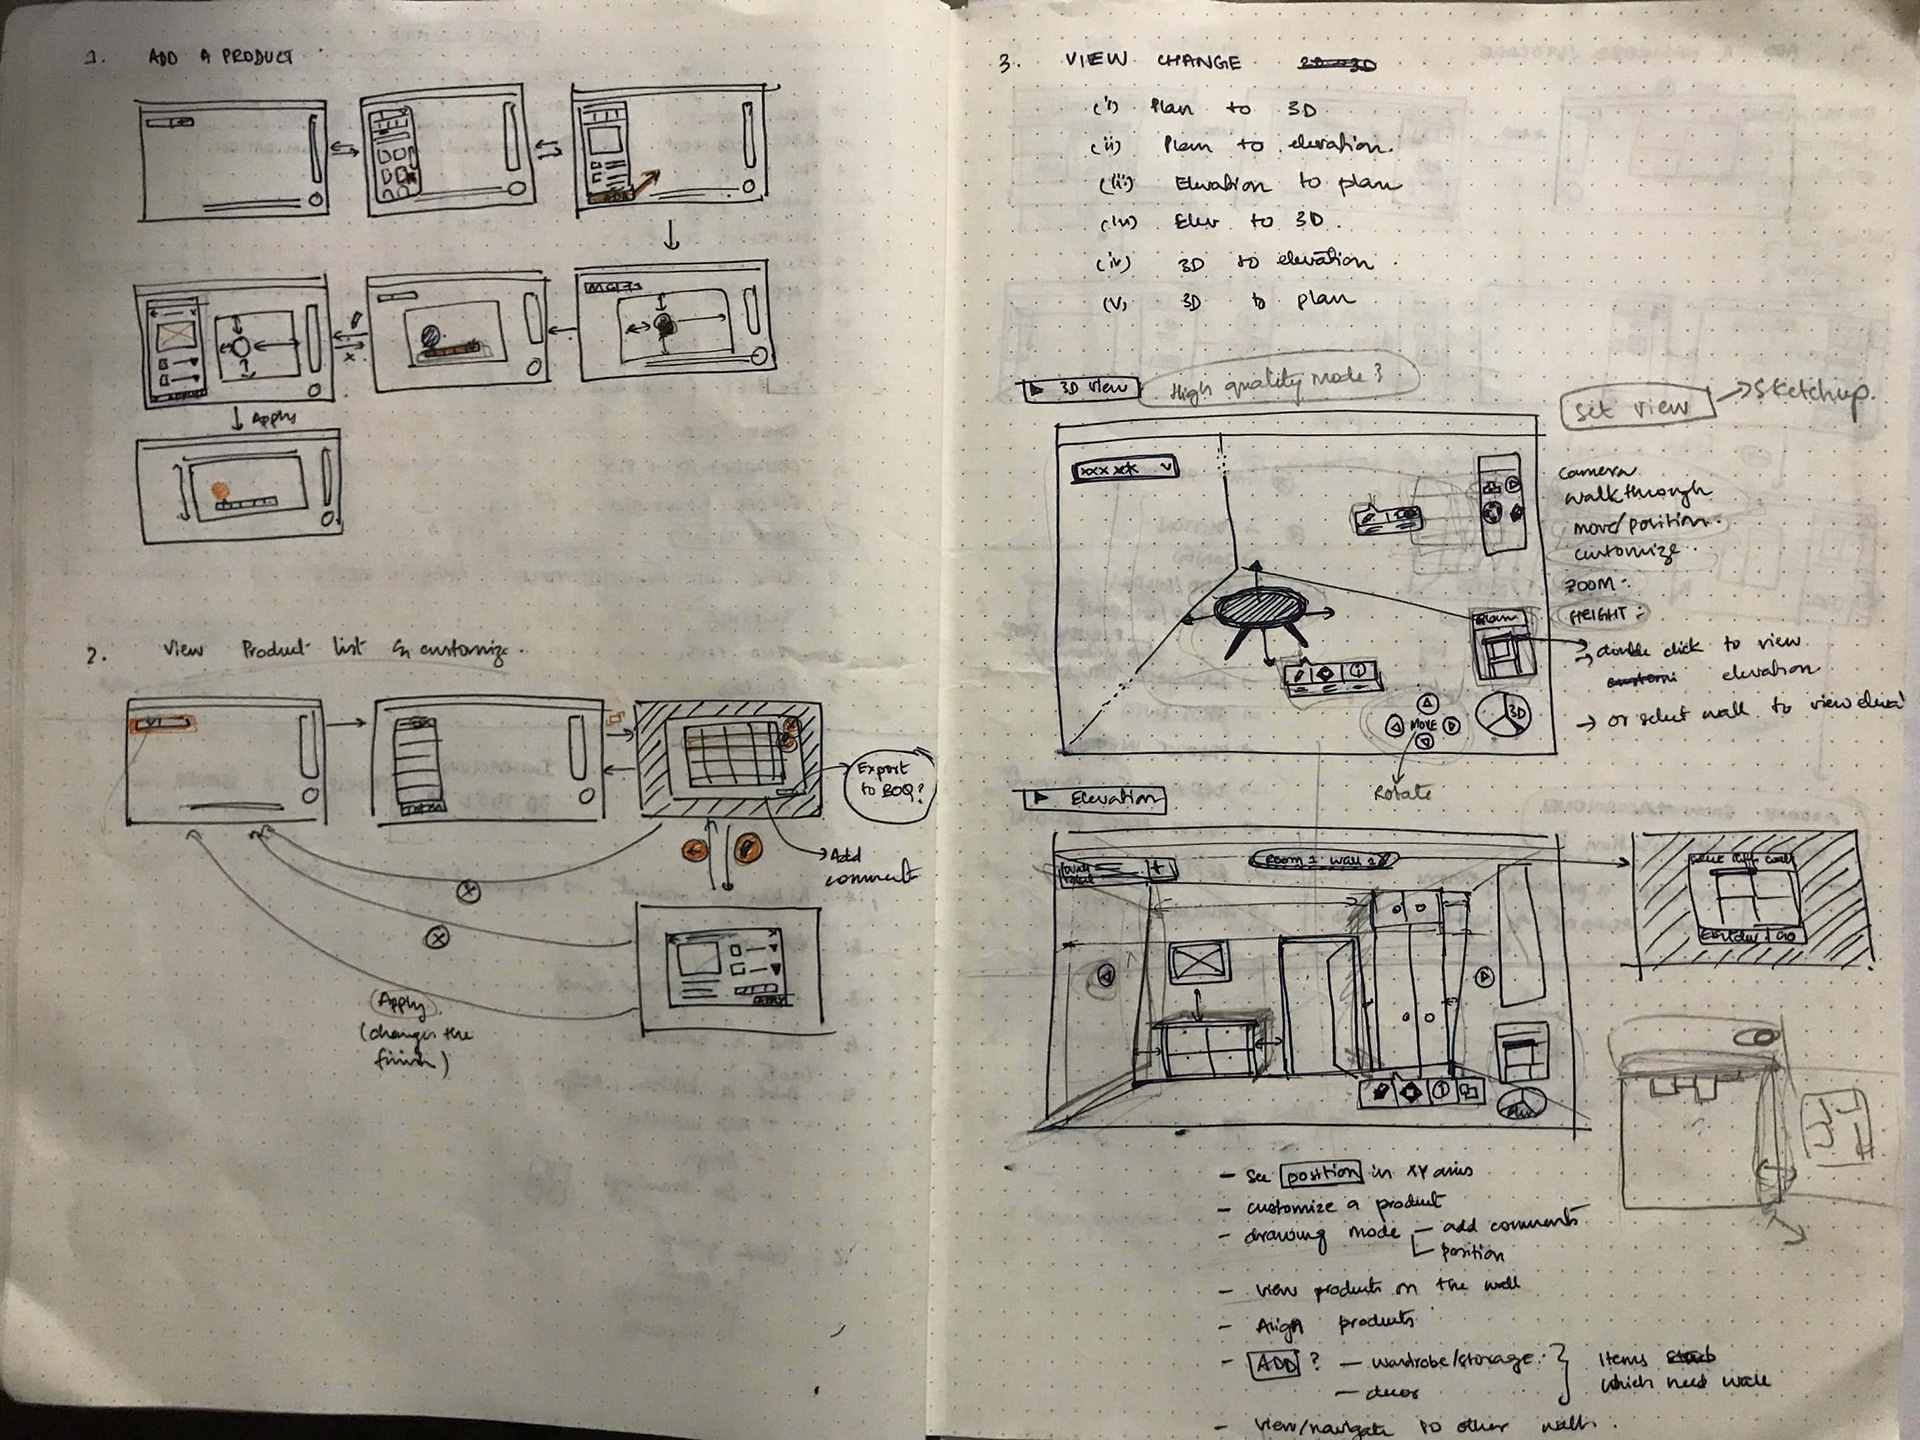 1. ADD A PRODUCT
Apply
2. View Product list & customize.
Export
to BOQ?
Add
comment
Apply
(changes the
finish)
3. VIEW CHANGE 2D 3D
(i) Plan to 3D
(ii) Plan to elevation.
(iii) Elevation to plan
(iv) Elev to 3D.
(iv) 3D to elevation
(v) 3D to plan
3D view
High quality mode?
Set view → Sketchup.
xxx xx
camera
walkthrough
move/position.
customize.
ZOOM:
HEIGHT:
Plan
→ double click to view
elevation
→ or select wall to view elevat
MOVE
3D
Rotate
Elevation
Room 1 wall 2
- See position in XY axis
- customize a product
- drawing mode - add comments
position
- view products on the wall
- Align products
- ADD ? - wardrobe/storage. } Items
- decor which need wall
- view/navigate to other walls.